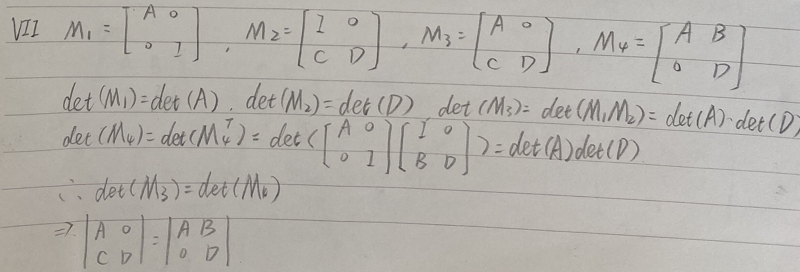 VII M₁ = [A 0; 0 I], M₂ = [I 0; C D], M₃ = [A 0; C D], M₄ = [A B; 0 D]
det(M₁)=det(A). det(M₂)=det(D) det(M₃)= det(M₁M₂)= det(A)·det(D)
det(M₄)=det(M₄ᵀ)= det([A 0; 0 I][I 0; B D])=det(A)det(D)
∴ det(M₃)=det(M₄)
⇒ |A 0; C D| = |A B; 0 D|